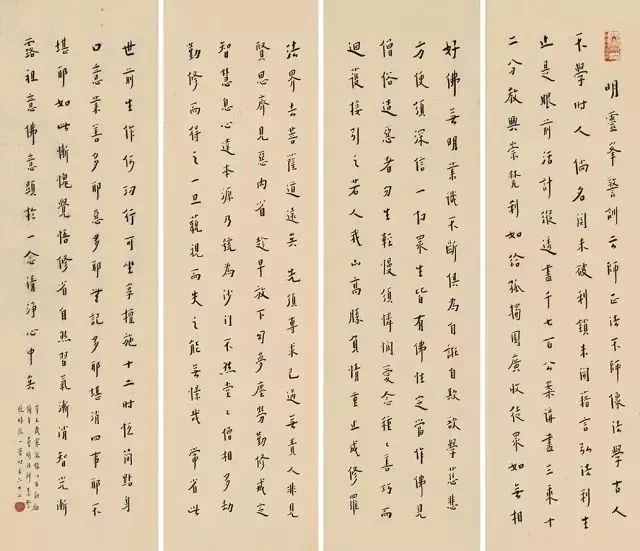 明靈峯警訓云師正法不師像法學古人
不學時人倘名聞未破利鎖未開藉言弘法利生
止是眼前活計縱透盡千七百公案講盡三乘十
二分教興崇梵刹如給孤獨園廣收徒眾如無相
好佛無明業識不斷俱為自誑自欺欲學慈悲
方便須深信一切眾生皆有佛性定當作佛見
僧俗造惡者勿生輕慢須憐憫愛念種種善巧而
迴護接引之若人我山高勝負情重止成修羅
法界去菩薩道遠矣先須專求己過毋責人非見
賢思齊見惡內省趁早放下夢塵勞勤修戒定
智慧息心達本源乃號為沙门不然堂堂僧相多劫
勤修而得之一旦藐視而失之能無哉常省此
世前生作何功行可坐享檀施十二時簡點身
口意業善多耶惡多耶無記多耶堪消四事耶不
堪耶如此慚愧覺悟修省自然習氣漸消智光漸
露祖意佛意顯於一念清淨心中矣